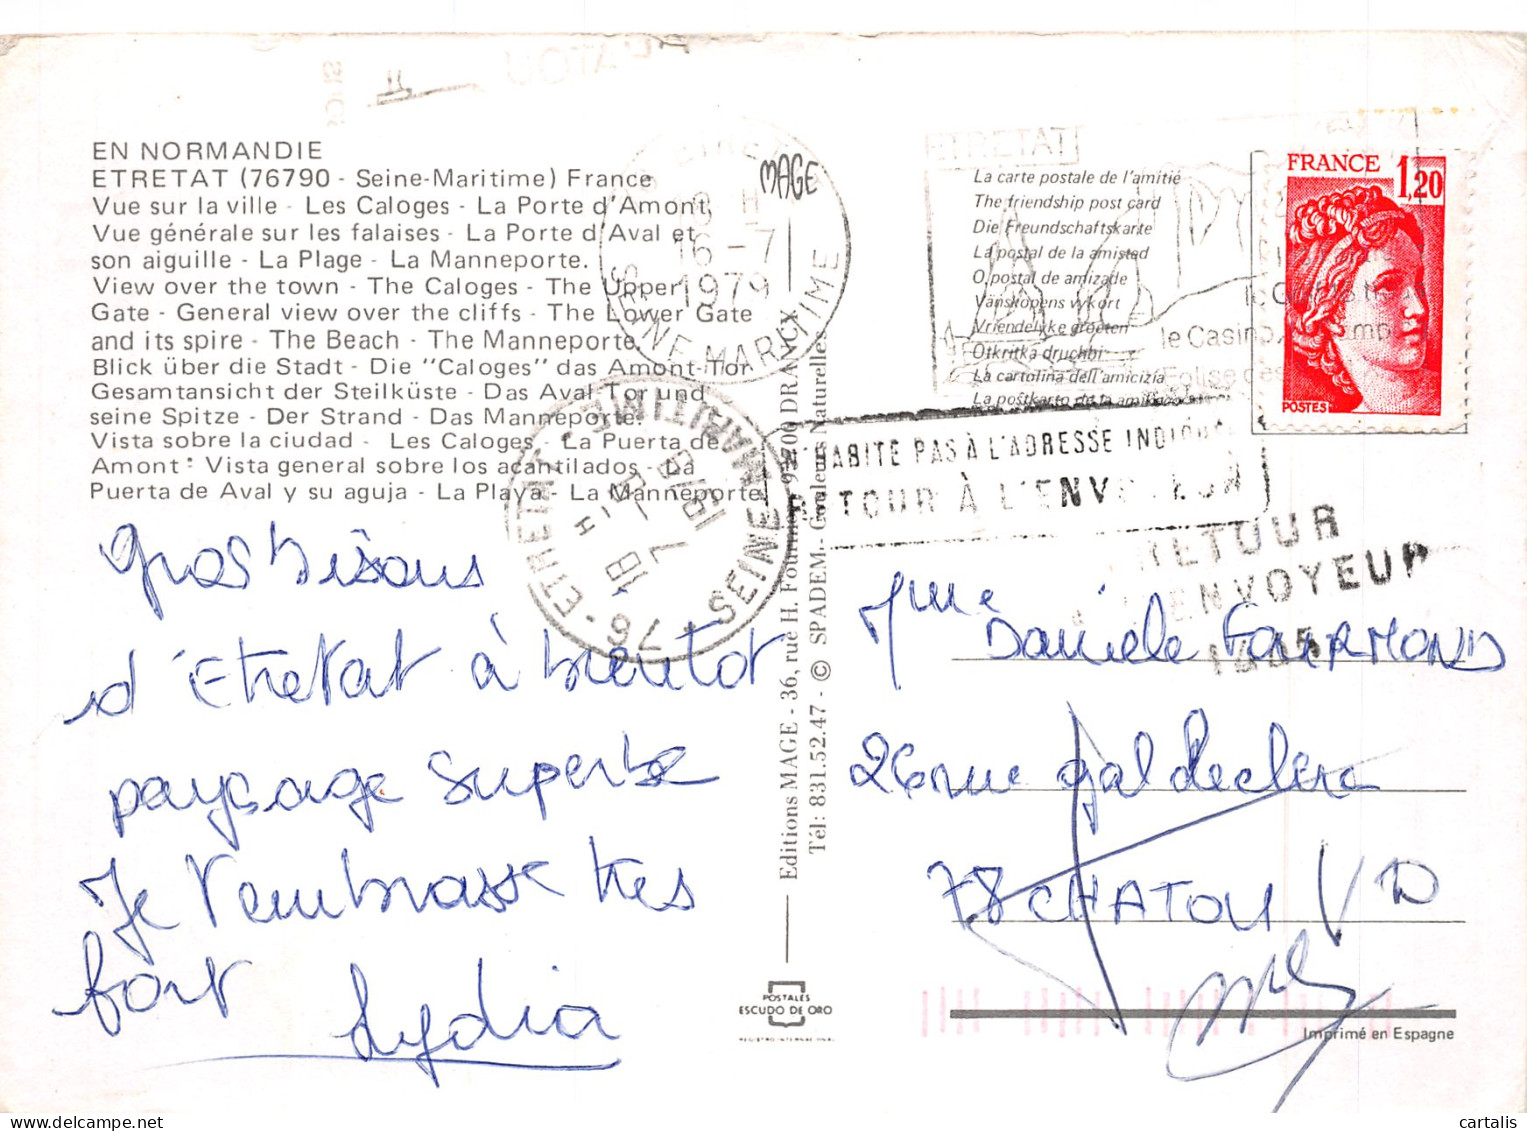 EN NORMANDIE
ETRETAT (76790 - Seine-Maritime) France
Vue sur la ville - Les Caloges - La Porte d'Amont,
Vue générale sur les falaises - La Porte d'Aval et
son aiguille - La Plage - La Manneporte.
View over the town - The Caloges - The Upper
Gate - General view over the cliffs - The Lower Gate
and its spire - The Beach - The Manneporte.
Blick über die Stadt - Die "Caloges" das Amont-Tor
Gesamtansicht der Steilküste - Das Aval Tor und
seine Spitze - Der Strand - Das Manneporte.
Vista sobre la ciudad - Les Caloges - La Puerta de
Amont - Vista general sobre los acantilados - La
Puerta de Aval y su aguja - La Playa - La Manneporte
Gros bisous
d'Etretat à bientot
paysage superbe
Je t'embrasse tres
fort
Lydia
MAGE
16-7
1979
SEINE MARITIME
76 - ETRETAT - SEINE MARITIME
18 H
5-7
1979
Editions MAGE - 36, rue H. Fournier 93700 DRANCY
Tél: 831.52.47 - © SPADEM. - Couleurs Naturelles
POSTALES
ESCUDO DE ORO
REGISTRO INTERNACIONAL
ETRETAT
La carte postale de l'amitié
The friendship post card
Die Freundschaftskarte
La postal de la amistad
O postal de amizade
Vänskapens vykort
Vriendelyke groeten
Otkritka druchbi
La cartolina dell'amicizia
le Casino
Eglise des
FRANCE 1,20
POSTES
HABITE PAS À L'ADRESSE INDIQUÉE
RETOUR À L'ENVOYEUR
RETOUR
ENVOYEUR
Mme Danièle FOURMOND
26 rue gal Leclerc
78 CHATOU
Imprimé en Espagne
cartalis